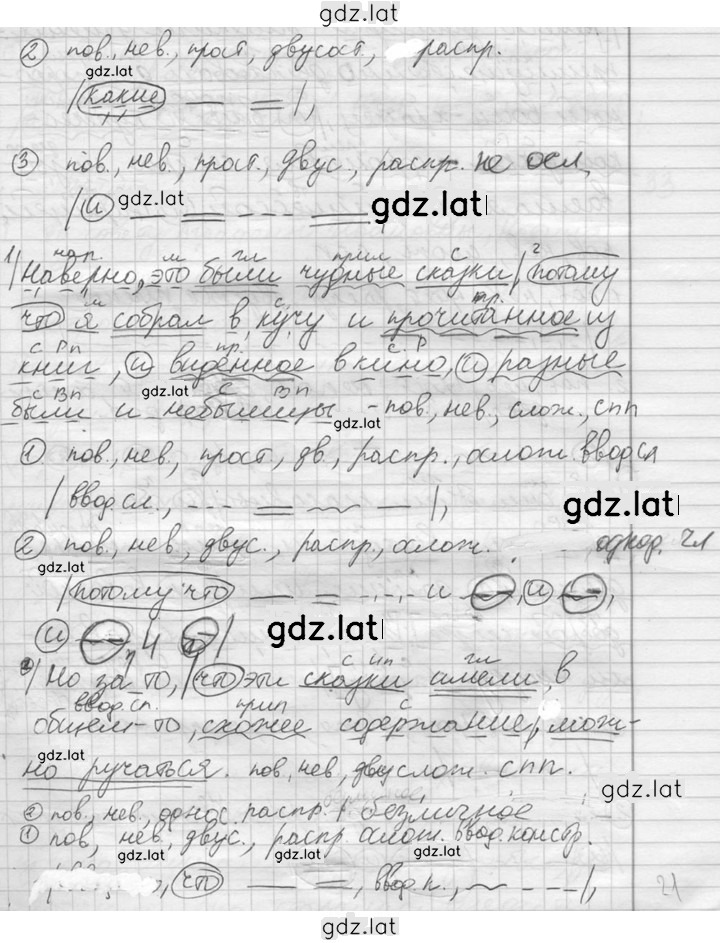 gdz.lat
② пов., нев., прост, двусост, распр.
gdz.lat
/какие — = /,
③ пов., нев., прост., двус., распр. не осл,
/и gdz.lat — = - - - = gdz.lat /,
нар. м гл прил с 2
1) /Наверно, это были чудные сказки/, потому
что я собрал в кучу и прочитанное из
с Рп пр. с Р
книг, и виденное в кино, и разные
с Вп gdz.lat с Вп
были и небылицы - пов., нев., слож., спп
gdz.lat
① пов., нев, прост, дв., распр., ослож. вводсл
/ввод сл., - - - = ~ — /, gdz.lat
② пов., нев, двус., распр., ослож. однод. чл
gdz.lat
/потому что — = -.-.- и О, и О,
и О и О / gdz.lat
с ип гл
2) /Но за то, /что эти сказки имели, в
ввод.сл. прил с
общем-то, схожее содержание/, мож-
gdz.lat
но ручаться. пов., нев, двуслож. спп.
gdz.lat
② пов., нев., однос. распр. безличное
① пов., нев., двус., распр ослож. ввод. констр.
gdz.lat gdz.lat
, что — =, ввод.к., ~ - - - /, 21
gdz.lat